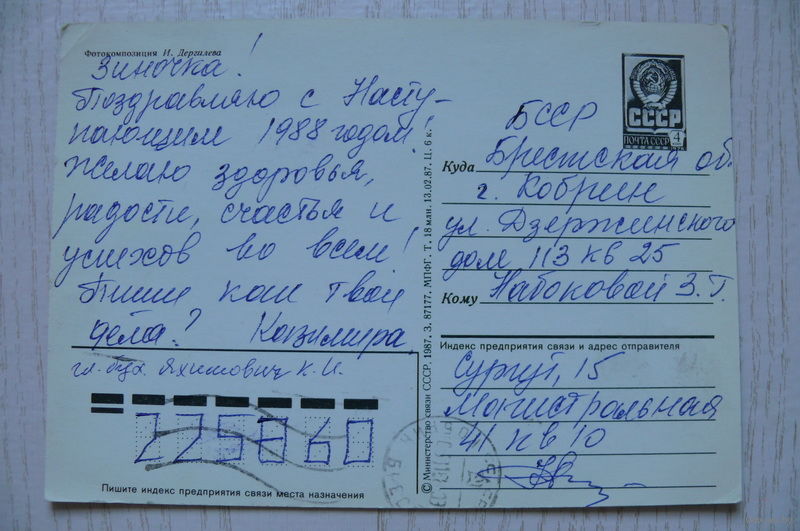 Фотокомпозиция И. Дергилева
Зиночка!
Поздравляю с Насту-
пающим 1988 годом!
Желаю здоровья,
радости, счастья и
успехов во всем!
Пиши как твои
дела? Казимира
гл. бух. Яхимович К. И.
225860
Пишите индекс предприятия связи места назначения
© Министерство связи СССР. 1987. З. 87177. МПФГ. Т. 18 млн. 13.02.87. Ц. 6 к.
СССР
ПОЧТА СССР 4
БССР
Куда Брестская об.
г. Кобрин
ул. Дзержинского
дом 113 кв 25
Кому Набоковой З. Г.
Индекс предприятия связи и адрес отправителя
Сургут, 15
Магистральная
41 кв 10